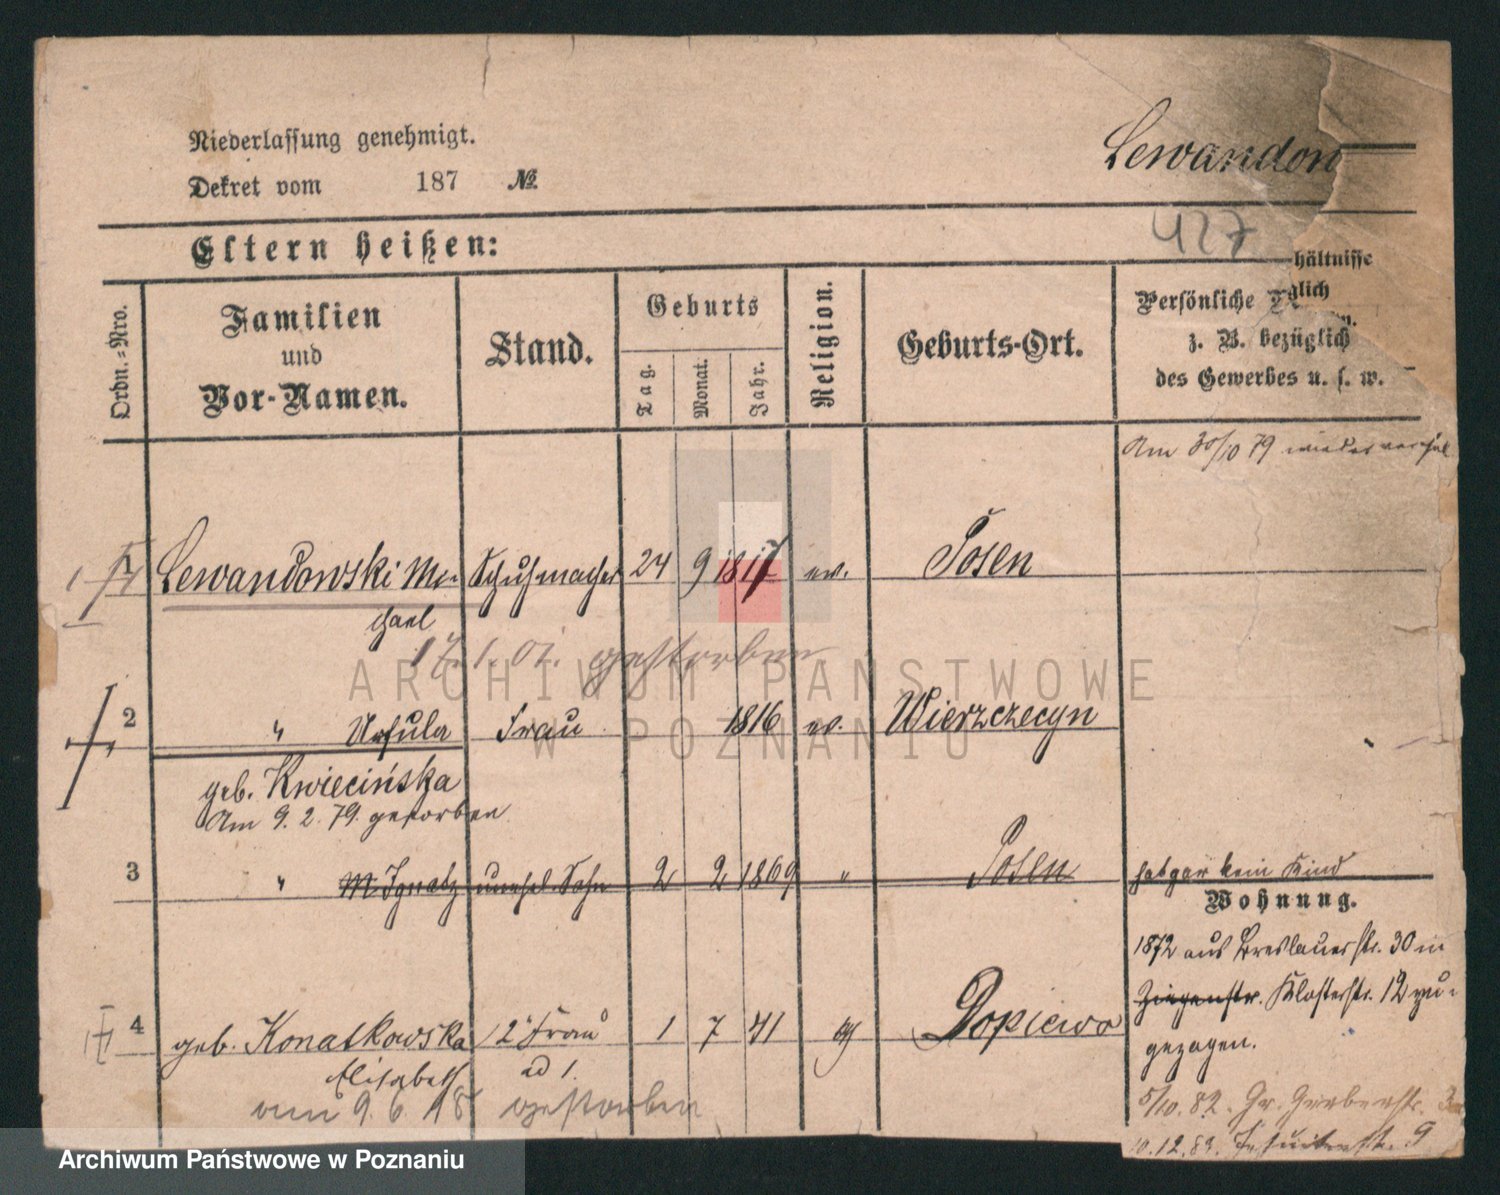 Niederlassung genehmigt.
Dekret vom 187 №
Lewandow
427
Eltern heißen:
Ordn.-Nro.
Familien und Vor-Namen.
Stand.
Geburts
Tag.
Monat.
Jahr.
Religion.
Geburts-Ort.
hältnisse
glich
Persönliche
z. B. bezüglich
des Gewerbes u. s. w.
Am 30/10 79 wieder
1 Lewandowski Mi- Schuhmacher 24 9 1817 ev. Posen
chael
17.1.01. gestorben
ARCHIWUM PAŃSTWOWE
W POZNANIU
2 " Ursula Frau 1816 ev. Wierzczecyn
geb. Kwiecińska
Am 9. 2. 79. gestorben
3 " Ignatz unehel. Sohn 2 2 1869 " Posen hat gar kein Kind
Wohnung.
1872 aus Breslauerstr. 30 in
Ziegenstr. Klosterstr. 12 zu-
gezogen.
4 geb. Konatkowska 2. Frau 1 7 41 Dopiewo
Elisabeth ad 1.
am 9. 6. 18 gestorben
5/10. 82. Gr. Gerberstr.
10.12.83. Jesuitenstr. 9
Archiwum Państwowe w Poznaniu